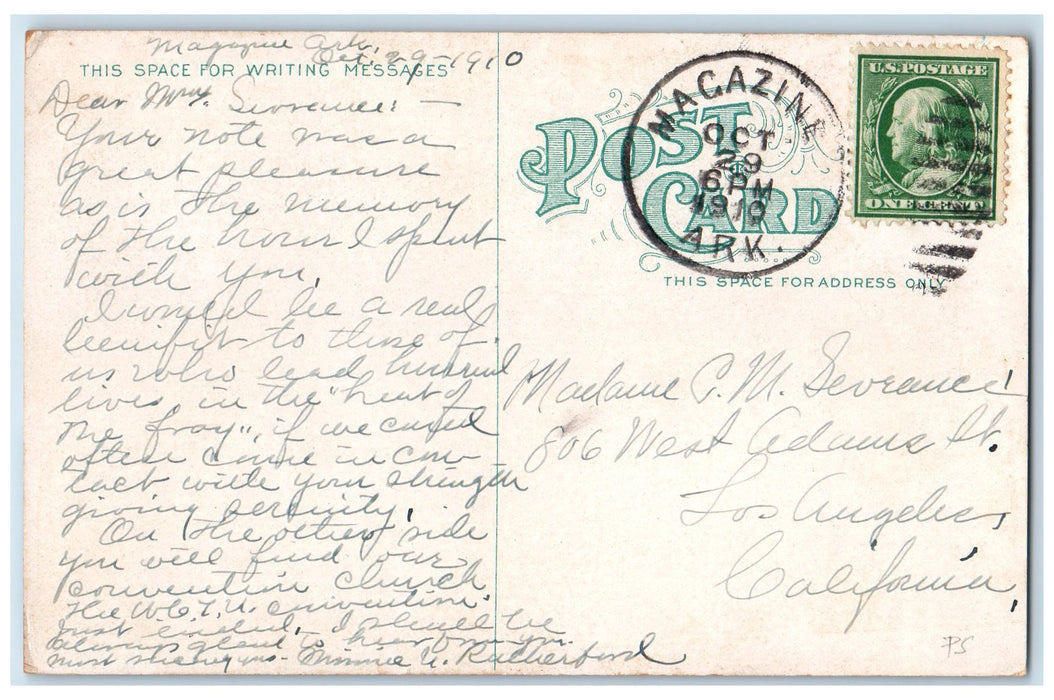 Magazine Ark.
Oct. 29-1910
THIS SPACE FOR WRITING MESSAGES
Dear Mrs. Severance: —
Your note was a
great pleasure
as is the memory
of the hour I spent
with you.
I would be a real
benifit to those of
us who lead hurried
lives in the "heat of
the fray", if we could
often come in con-
tact with your strength
giving serenity.
On the other side
you will find our
convention church
the W.C.T.U. convention
just ended. I shall be
always glad to hear from you.
most sincerely - Minnie U. Rutherford
POST CARD
MAGAZINE
OCT
29
6 PM
1910
ARK.
U.S. POSTAGE
ONE CENT
THIS SPACE FOR ADDRESS ONLY
Madame C. M. Severance
806 West Adams St.
Los Angeles,
California,
PS